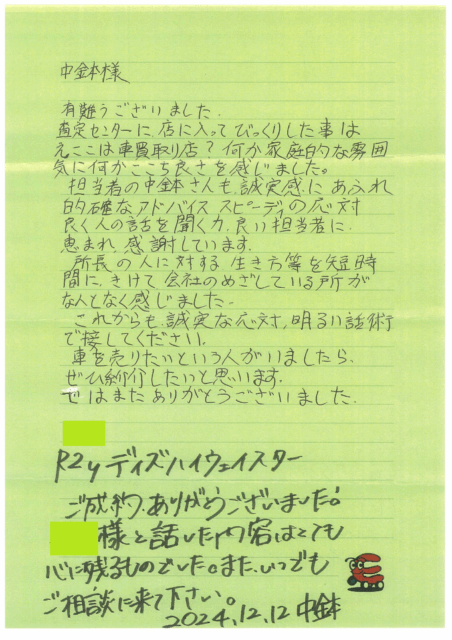 中金本様
有難うございました.
査定センターに、店に入ってびっくりした事は
えここは車買取り店?何か家庭的な雰囲
気に何かここち良さを感じました。
担当者の中金本さんも、誠実感にあふれ
的確なアドバイス スピーディの応対
良く人の話を聞く力、良い担当者に、
恵まれ 感謝しています.
所長の人に対する 生き方等を短時
間に、きけて 会社のめざしている所が
なんとなく感じました.
これからも、誠実な応対、明るい話術
で接してください。
車を売りたいという人がいましたら、
ぜひ紹介したいと思います.
ではまたありがとうございました.
R2y デイズハイウェイスター
ご成約、ありがとうございました!
様と話した内容はとても
心に残るものでした。また、いつでも
ご相談に来て下さい。
2024,12,12 中金本